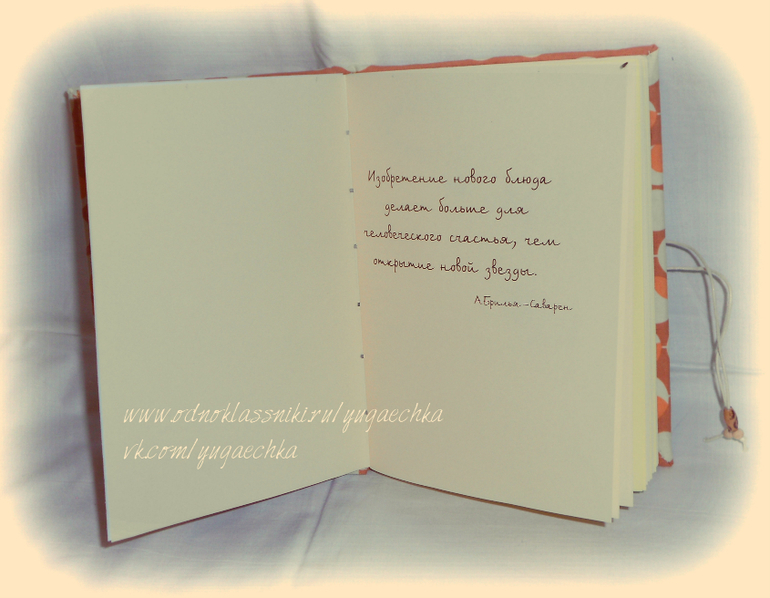 Изобретение нового блюда
делает больше для
человеческого счастья, чем
открытие новой звезды.
А.Брилья-Саварен
www.odnoklassniki.ru/yugaechka
vk.com/yugaechka